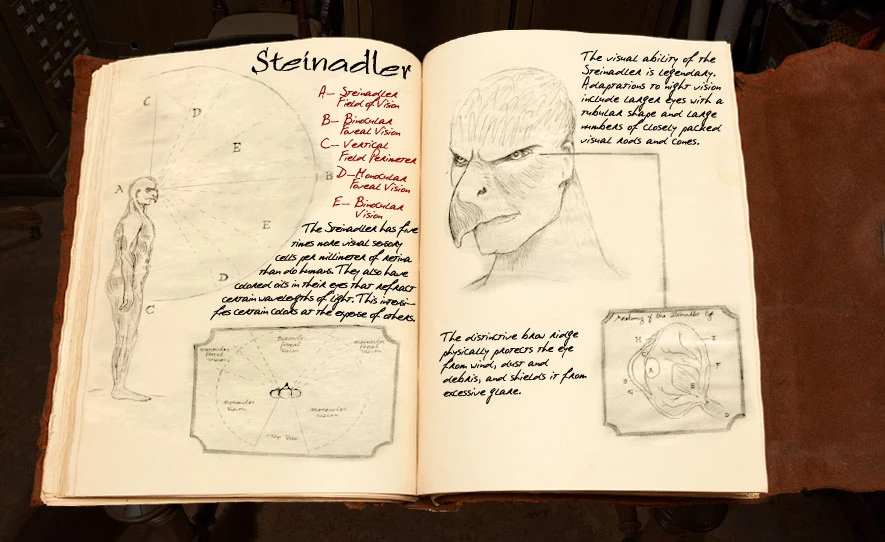 Steinadler
A- Steinadler
Field of Vision
B- Binocular
Foveal Vision
C- Vertical
Field Perimeter
D- Monocular
Foveal Vision
E- Binocular
Vision
C
D
E
A
B
E
D
C
The Steinadler has five
times more visual sensory
cells per millimeter of retina
than do humans. They also have
colored oils in their eyes that refract
certain wavelengths of light. This intensi-
fies certain colors at the expense of others.
monocular
foveal
vision
binocular
foveal
vision
monocular
foveal
vision
monocular
vision
monocular
vision
Top View
The visual ability of the
Steinadler is legendary.
Adaptations to night vision
include larger eyes with a
tubular shape and large
numbers of closely packed
visual rods and cones.
The distinctive brow ridge
physically protects the eye
from wind, dust and
debris, and shields it from
excessive glare.
Anatomy of the Steinadler Eye
H
I
C
A
F
B
E
G
D